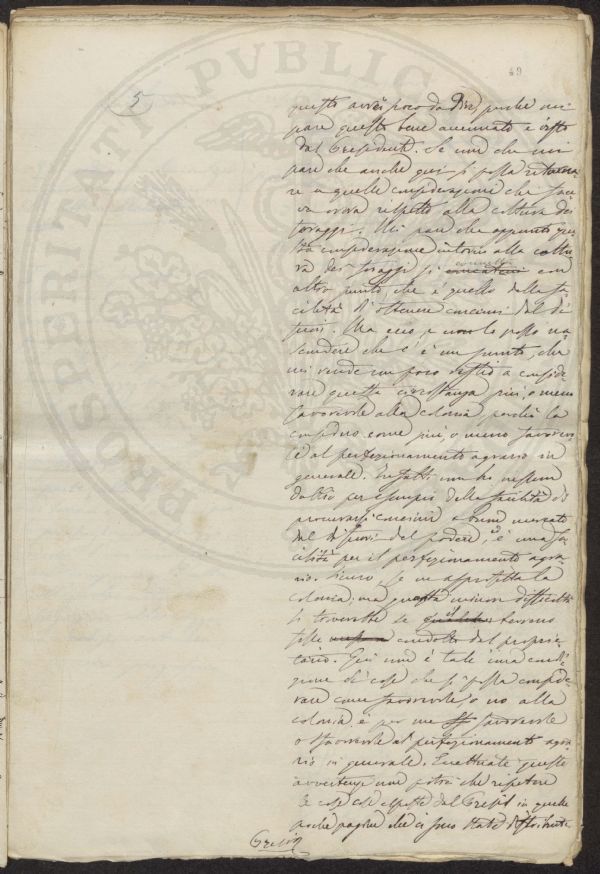 PROSPERITATI PVBLICAE
5
69
questo avrei poco da dire, perché mi
pare questo bene accennato e visto
dal Presidente. Se non che mi
pare che anche qui si possa ritorna
re a quelle considerazione che face
va ora rispetto alla coltura dei
foraggi. Mi pare che appunto que
sta considerazione intorno alla coltu
ra dei foraggi si connetta con
altro punto che è quello della fa
cilità d'ottenere concimi dal di
fuori. Ma ecco, e non lo posso na
scondere che c'è un punto, che
mi rende un poco restio a conside
rare questa circostanza più, o meno
favorevole alla colonia perché la
considero come più, o meno favorevo
le al perfezionamento agrario in
generale. Infatti non ho nessun
dubbio per esempio della facilità di
procurarsi concimi a buon mercato
dal di fuori del podere, è una fa
cilità per il perfezionamento agra
rio. Sicuro, se ne approfitta la
colonia: ma questa minor difficoltà
si troverebbe se il terreno
fosse condotto dal proprie
tario. Qui non è tale una condi
zione di cose che si possa conside
rare come favorevole, o no alla
colonia: è per me favorevole
o sfavorevole al perfezionamento agra
rio in generale. Eccettuate queste
avvertenze non potrei che ripetere
le cose esposte dal Presid in quelle
poche pagine che ci sono state distribuite